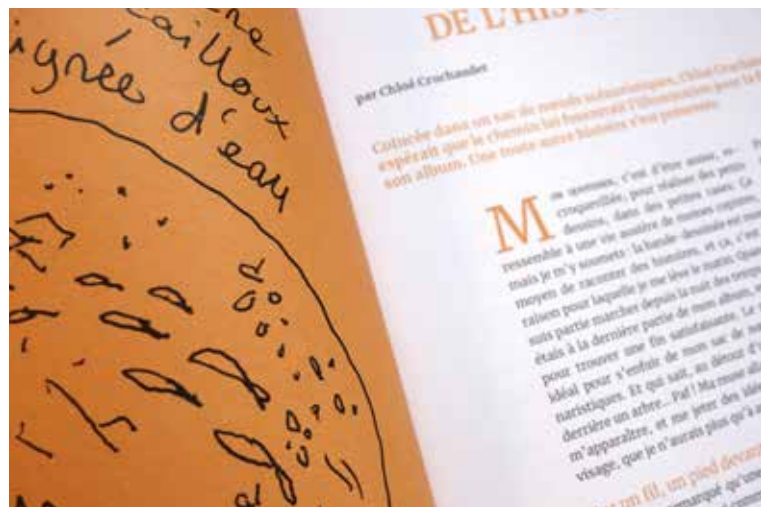 cailloux
d'eau
DE L'HIS
par Chloé Cruchaudet
Coincée dans un sac de nœuds scénaristiques, Chloé Crucha
espérait que le chemin lui fournirait l'illumination pour la f
son album. Une toute autre histoire s'est présentée.
Mon quotidien, c'est d'être assise, re-
croquevillée, pour réaliser des petits
dessins, dans des petites cases. Ça
ressemble à une vie austère de moines copistes,
mais je m'y soumets : la bande dessinée est mon
moyen de raconter des histoires, et ça, c'est
raison pour laquelle je me lève le matin. Quand
suis partie marcher depuis la nuit des temps
étais à la dernière partie de mon album,
pour trouver une fin satisfaisante. Le
idéal pour s'enfuir de mon sac de nœ
naristiques. Et qui sait, au détour d'
derrière un arbre... Paf ! Ma muse all
m'apparaître, et me jeter des idé
visage, que je n'aurais plus qu'à a
un fil, un pied devan
emarqué qu'une